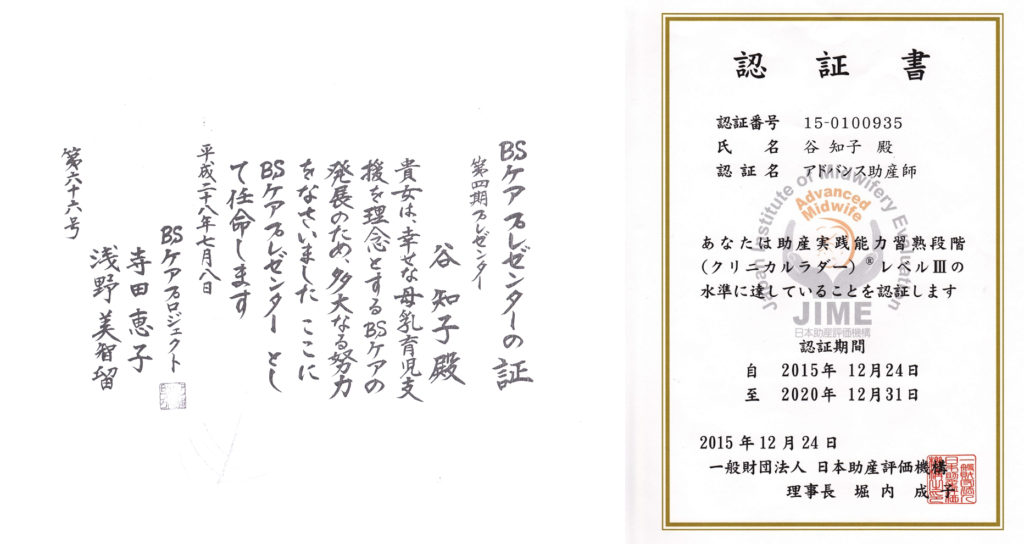 BSケアプレゼンターの証
第四期プレゼンター
谷 知子 殿
貴女は、幸せな母乳育児支
援を理念とするBSケアの
発展のため、多大なる努力
をなさいました ここに
BSケアプレゼンター とし
て任命します
平成二十八年七月八日
BSケアプロジェクト
寺田恵子
浅野美智留
第六十六号
認証書
認証番号 15-0100935
氏名 谷 知子 殿
認証名 アドバンス助産師
Japan Institute of Midwifery Evaluation
Advanced
Midwife
あなたは助産実践能力習熟段階
(クリニカルラダー)®レベルⅢの
水準に達していることを認証します
JIME
日本助産評価機構
認証期間
自 2015年 12月24日
至 2020年 12月31日
2015年12月24日
一般財団法人 日本助産評価機構
理事長 堀内 成子